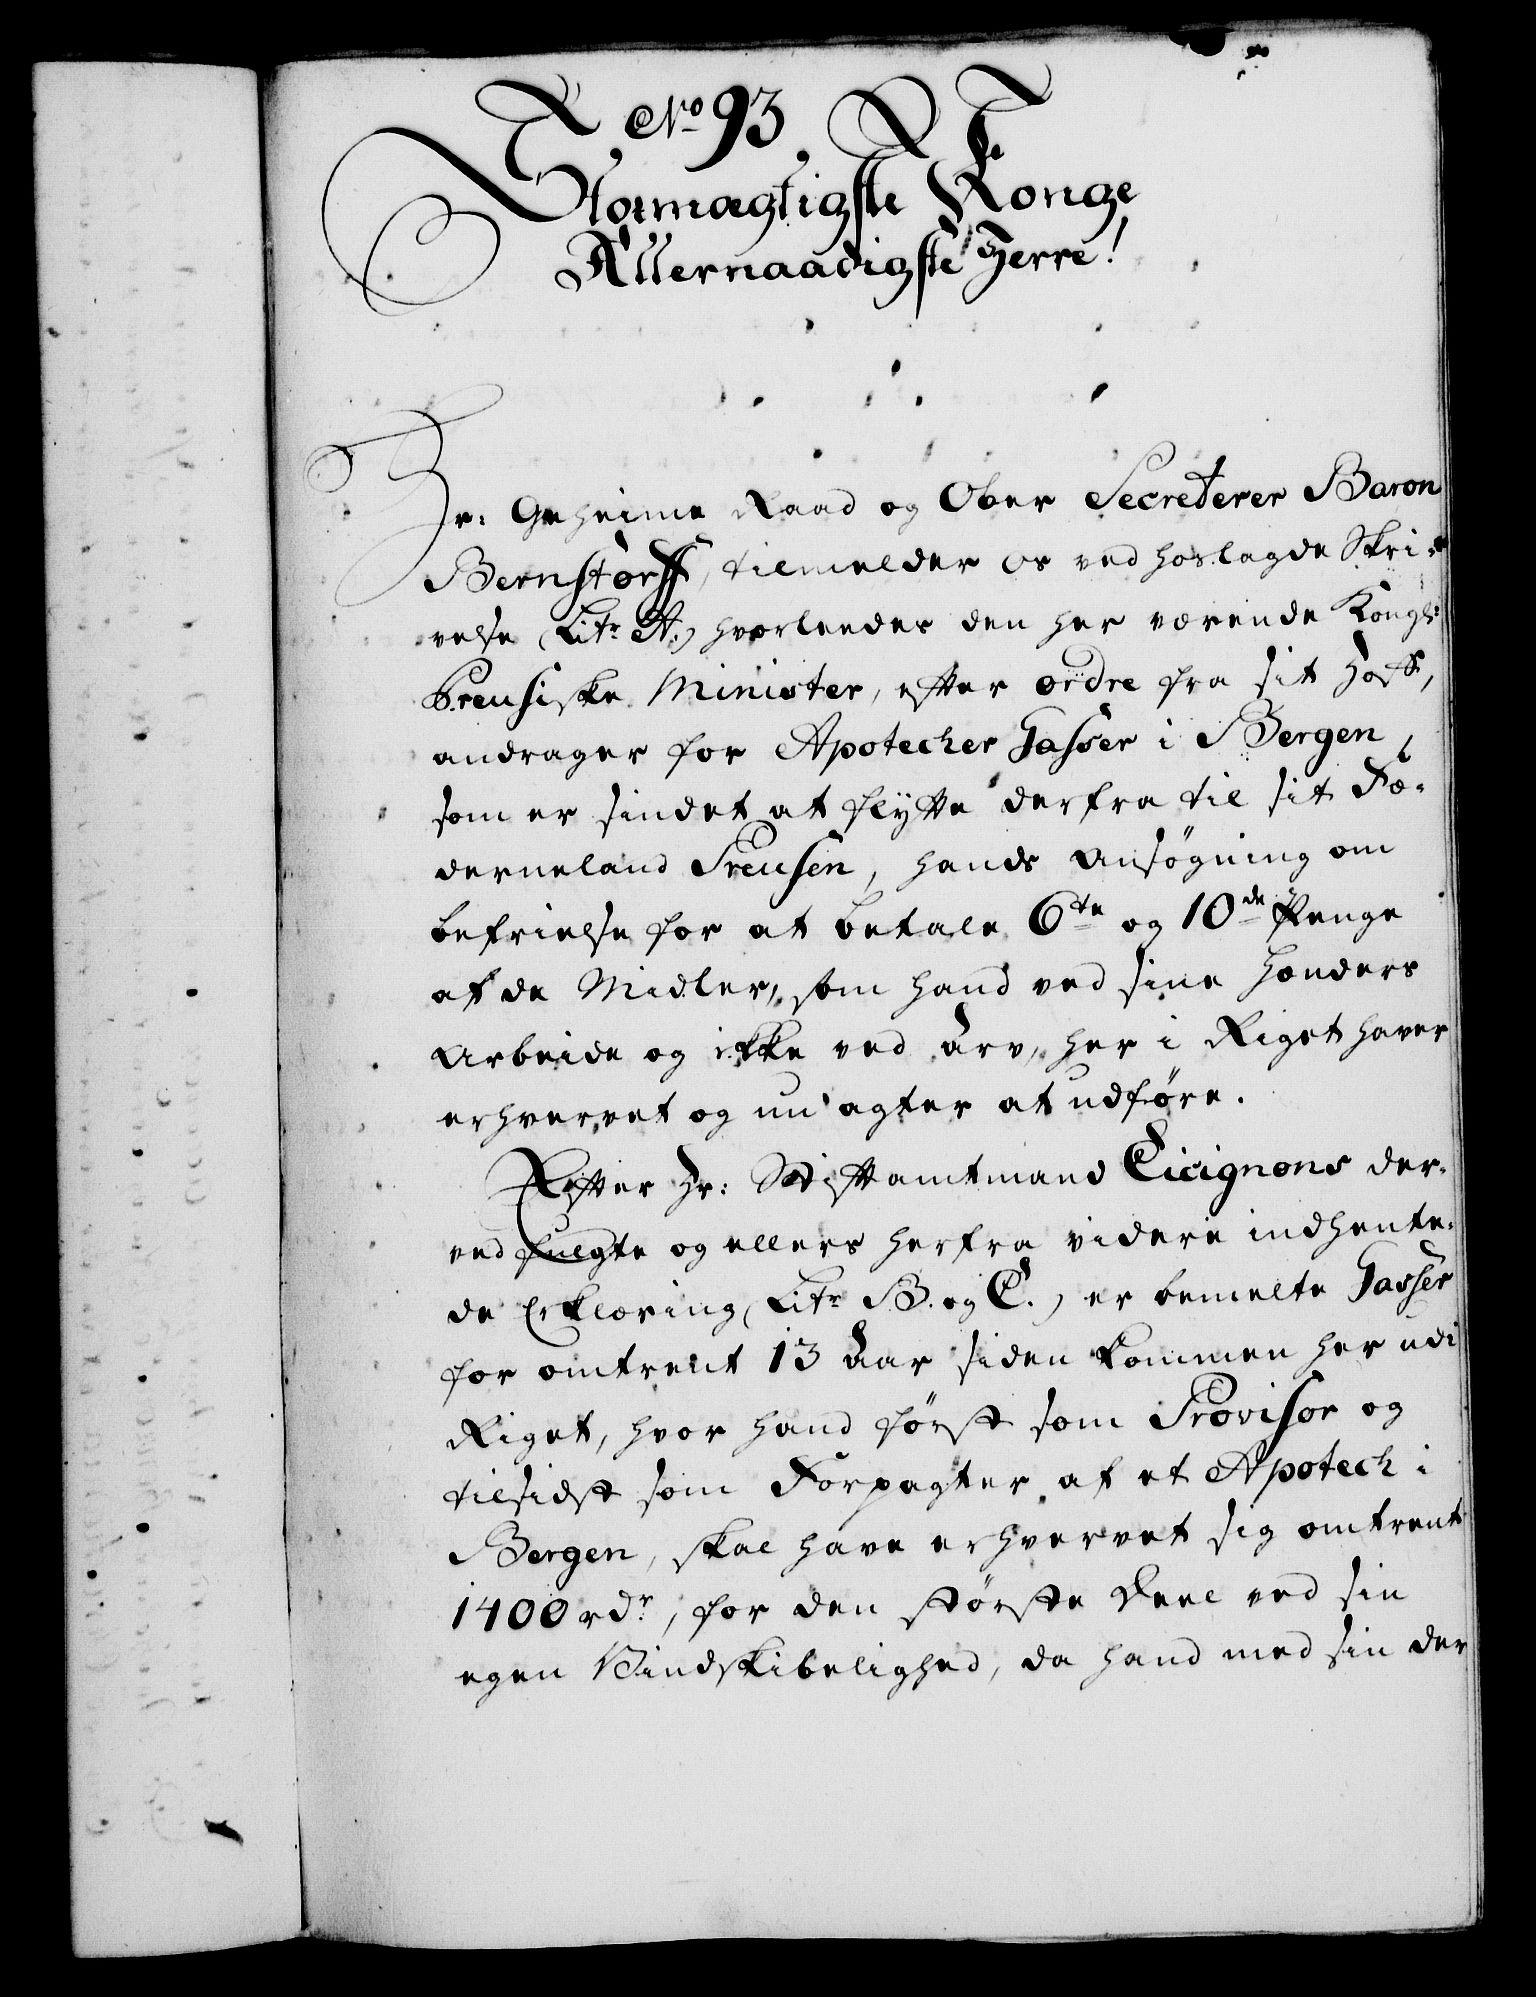 No 93
Stormægtigste Konge
Allernaadigste Herre!
Hr: Geheime Raad og Ober Secreterer Baron
Bernstorff, tilmelder os ved hoslagde Skri-
velse (Litr A:) hvorleedes den her værende Kongl:
Preusiske Minister, efter ordre fra sit Hoff,
andrager for Apotecher Tasser i Bergen,
som er sindet at flytte derfra til sit Fæ-
derneland Preusen, hands ansøgning om
befrielse for at betale 6te og 10de Penge
af de Midler, som hand ved sine Hænders
Arbeide og ikke ved arv, her i Riget haver
erhvervet og nu agter at udføre.
Efter Hr: Stiftamtmand Cicignons der-
ved fulgte og ellers herfra videre indhente-
de Erklæring (Litr B. og C.) er bemelte Tasser
for omtrent 13 Aar siden kommen her udi
Riget, hvor hand først som Provisor og
tilsidst som Forpagter af et Apotech i
Bergen, skal have erhvervet sig omtrent
1400 rdr, for den største Deel ved sin
egen Vindskibelighed, da hand med sin der